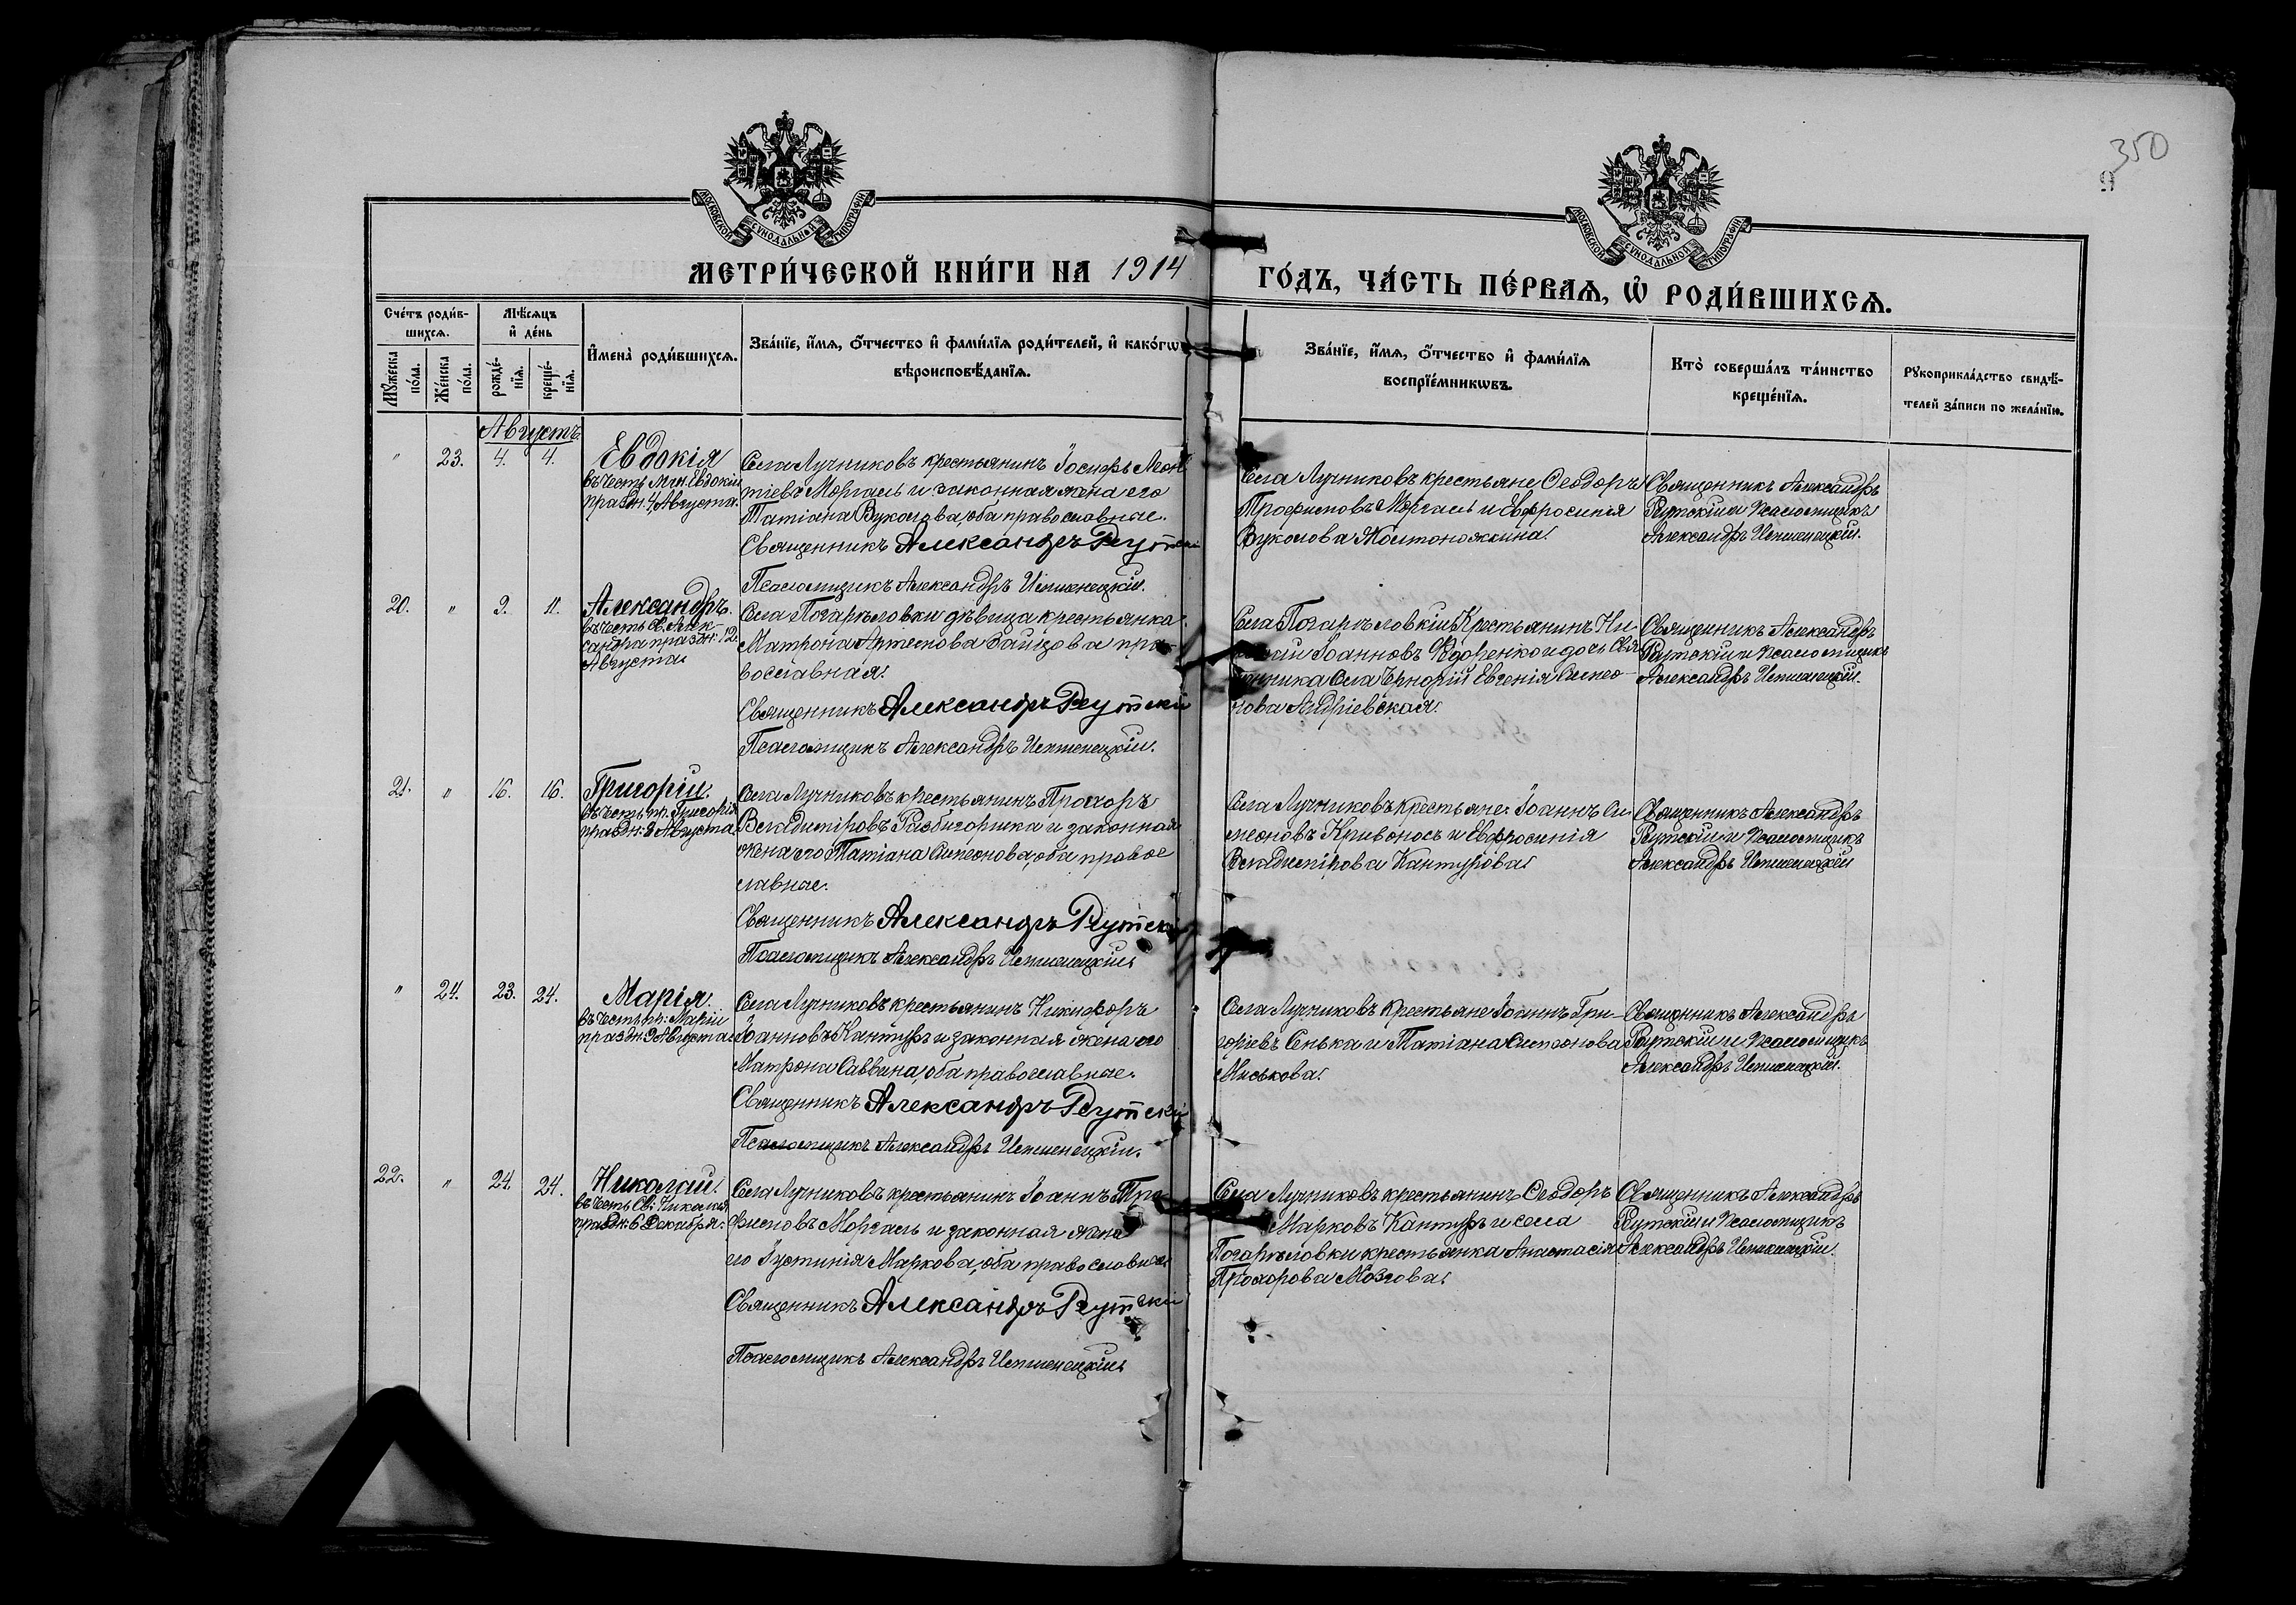 350
МОСКОВСКОЙ СУНОДАЛЬНОЙ ТИПОГРАФІИ
МОСКОВСКОЙ СУНОДАЛЬНОЙ ТИПОГРАФІИ
МЕТРИ́ЧЕСКОЙ КНИ́ГИ НА 1914
ГО́ДЪ, ЧА́СТЬ ПЕ́РВАѦ, Ѡ РОДИ́ВШИХСѦ.
Сче́тъ роди́в-
шихсѧ.
Мꙋжеска
по́ла.
Же́нска
по́ла.
Мѣ́сѧцъ
и҆ де́нь
рожде́-
нїѧ.
креще́-
нїѧ.
И҆мена̀ роди́вшихсѧ.
Зва́нїе, и҆́мѧ, ѻ҆́тчество и҆ фами́лїѧ роди́телей, и҆ како́гѡ
вѣроисповѣ́данїѧ.
Зва́нїе, и҆́мѧ, ѻ҆́тчество и҆ фами́лїѧ
воспрїе́мникѡвъ.
Кто̀ соверша́лъ та́инство
креще́нїѧ.
Рꙋкоприкла́дство свидѣ́-
телей за́писи по жела́нїю.
Августъ.
" 23. 4. 4.
Евдокія
въ честь мч. Евдокіи
праздн. 4 Августа.
Села Лучниковъ крестьянинъ Іосифъ Леон
тіевъ Моргаль и законная жена его
Татіана Вуколова, оба православные.
Священникъ Александръ Реутскій
Псаломщикъ Александръ Ишменецкій.
Села Лучниковъ крестьяне Ѳеодоръ
Трофимовъ Моргаль и Евфросинія
Вуколова Жолтоножкина.
Священникъ Александръ
Реутскій и Псаломщикъ
Александръ Ишменецкій.
20. " 9. 11.
Александръ.
въ честь Св. Алек-
сандра праздн: 12
Августа.
Села Погарѣловки дѣвица крестьянка
Матрона Артемова Зайцова пра-
вославная.
Священникъ Александръ Реутскій
Псаломщикъ Александръ Ишменецкій.
Села Погарѣловки Крестьянинъ Ни-
Іоанновъ Ѳедоренко и дочь Свя
щенника Села Чернорій Евгенія Симео-
нова Андріевская.
Священникъ Александръ
Реутскій и Псаломщикъ
Александръ Ишменецкій.
21. " 16. 16.
Григорій.
въ честь пр. Григорія
праздн: 8 Августа.
Села Лучниковъ крестьянинъ Прохоръ
Владиміровъ Разбигорика и законная
жена его Татіана Симеонова, оба право
славные.
Священникъ Александръ Реутскій
Псаломщикъ Александръ Ишменецкій.
Села Лучниковъ Крестьяне: Іоаннъ Си-
меоновъ Кривоносъ и Евфросинія
Владимірова Кантурова.
Священникъ Александръ
Реутскій и Псаломщикъ
Александръ Ишменецкій
" 24. 23. 24.
Марія.
въ честь пр: Маріи
праздн: 9 Августа.
Села Лучниковъ крестьянинъ Никифоръ
Іоанновъ Кантуръ и законная жена его
Матрона Саввина, оба православные.
Священникъ Александръ Реутскій
Псаломщикъ Александръ Ишменецкій.
Села Лучниковъ Крестьяне Іоаннъ Гри-
горіевъ Сенька и Татіана Симеонова
Миськова.
Священникъ Александръ
Реутскій и Псаломщикъ
Александръ Ишменецкій.
22. " 24. 24.
Николай.
въ честь Св: Николая
праздн: 6 Декабря.
Села Лучниковъ крестьянинъ Іоаннъ Тро
фимовъ Моргаль и законная жена
его Іустинія Маркова, оба православные.
Священникъ Александръ Реутскій
Псаломщикъ Александръ Ишменецкій.
Села Лучниковъ крестьянинъ Ѳеодоръ
Марковъ Кантуръ и села
Погарѣловки крестьянка Анастасія
Прохорова Мозгова.
Священникъ Александръ
Реутскій и Псаломщикъ
Александръ Ишменецкій.